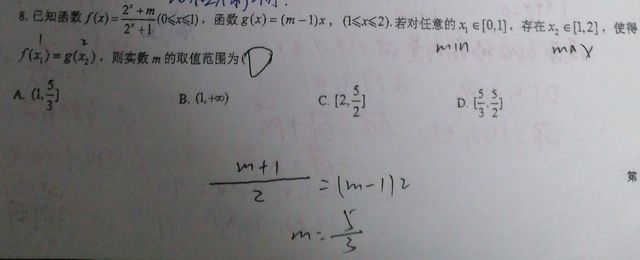 8. 已知函数 f(x)=\frac{2^x+m}{2^x+1}(0≤x≤1)，函数 g(x)=(m-1)x，(1≤x≤2).若对任意的 x₁∈[0,1]，存在 x₂∈[1,2]，使得
1 2 min max
f(x₁)=g(x₂)，则实数 m 的取值范围为( D
A. (1,\frac{5}{3}] B. (1,+∞) C. [2,\frac{5}{2}] D. [\frac{5}{3},\frac{5}{2}]
\frac{m+1}{2}=(m-1)2
第
m=\frac{5}{3}